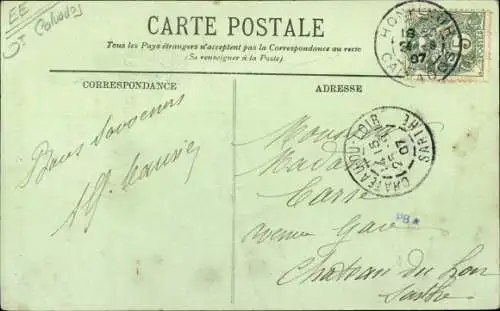 EE
Calvados
CARTE POSTALE
Tous les Pays étrangers n'acceptent pas la Correspondance au recto
(Se renseigner à la Poste)
CORRESPONDANCE
ADRESSE
HONFLEUR
CALVADOS
CHATEAU-DU-LOIR
SARTHE
Bons Souvenirs
Monsieur
Madame
avenue Gare
Chateau du Loir
Sarthe
PB